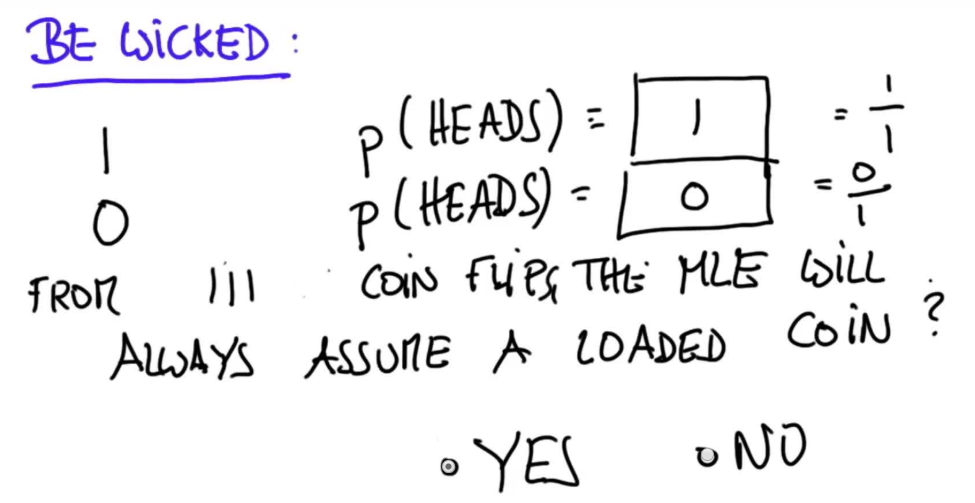 BE WICKED:
1 P(HEADS) = 1 = 1/1
0 P(HEADS) = 0 = 0/1
FROM 111 COIN FLIPS, THE MLE WILL
ALWAYS ASSUME A LOADED COIN?
YES NO